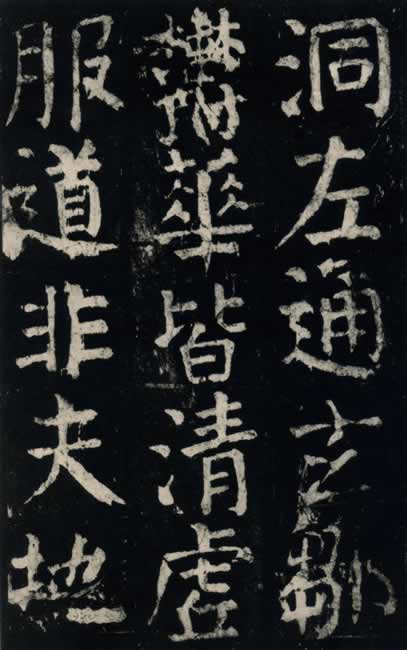 洞左通玄鄒
鬱華皆清虛
服道非夫地